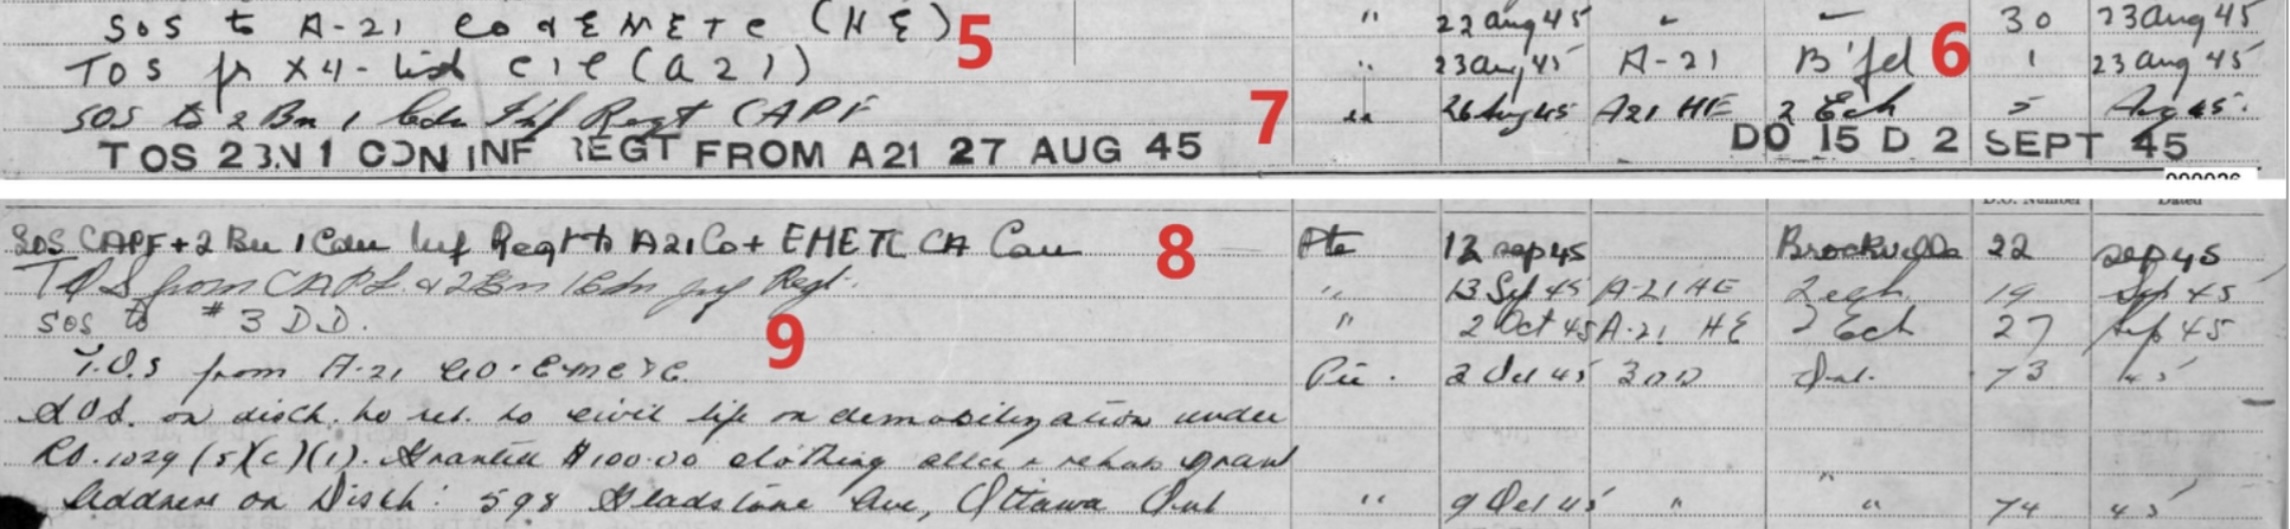 SOS to A-21 CO & EMETC (HE) 5 " 22 Aug 45 " 30 23 Aug 45
TOS fr X4-List CIC (A21) " 23 Aug 45 A-21 B'fd 6 1 23 Aug 45
SOS to 2 Bn 1 Cdn Inf Regt CAPF 7 " 26 Aug 45 A21 HE 2 Ech 5 Aug 45.
TOS 2BN 1 CDN INF REGT FROM A21 27 AUG 45 DO 15 D 2 SEPT 45
D.O. Number Dated
SOS CAPF + 2 Bn 1 Cdn Inf Regt to A21 CO + EMETC CA Can 8 Pte 12 Sep 45 Brockville 22 Sep 45
TOS from CAPF & 2 Bn 1 Cdn Inf Regt. " 13 Sep 45 A-21 HE 2 Ech 19 Sep 45
SOS to # 3 D.D. 9 " 2 Oct 45 A-21 HE 2 Ech 27 Sep 45
T.O.S from A-21 C.O.E.M.E.T.C. Pte. 3 Oct 45 3DD Ont. 73 45
SOS. on disch. to ret. to civil life on demobilization under
RO.1029 (5)(c)(1). Granted $100.00 clothing allce & rehab grant "
Address on Disch: 598 Gladstone Ave, Ottawa Ont " 9 Oct 45 " " 74 45